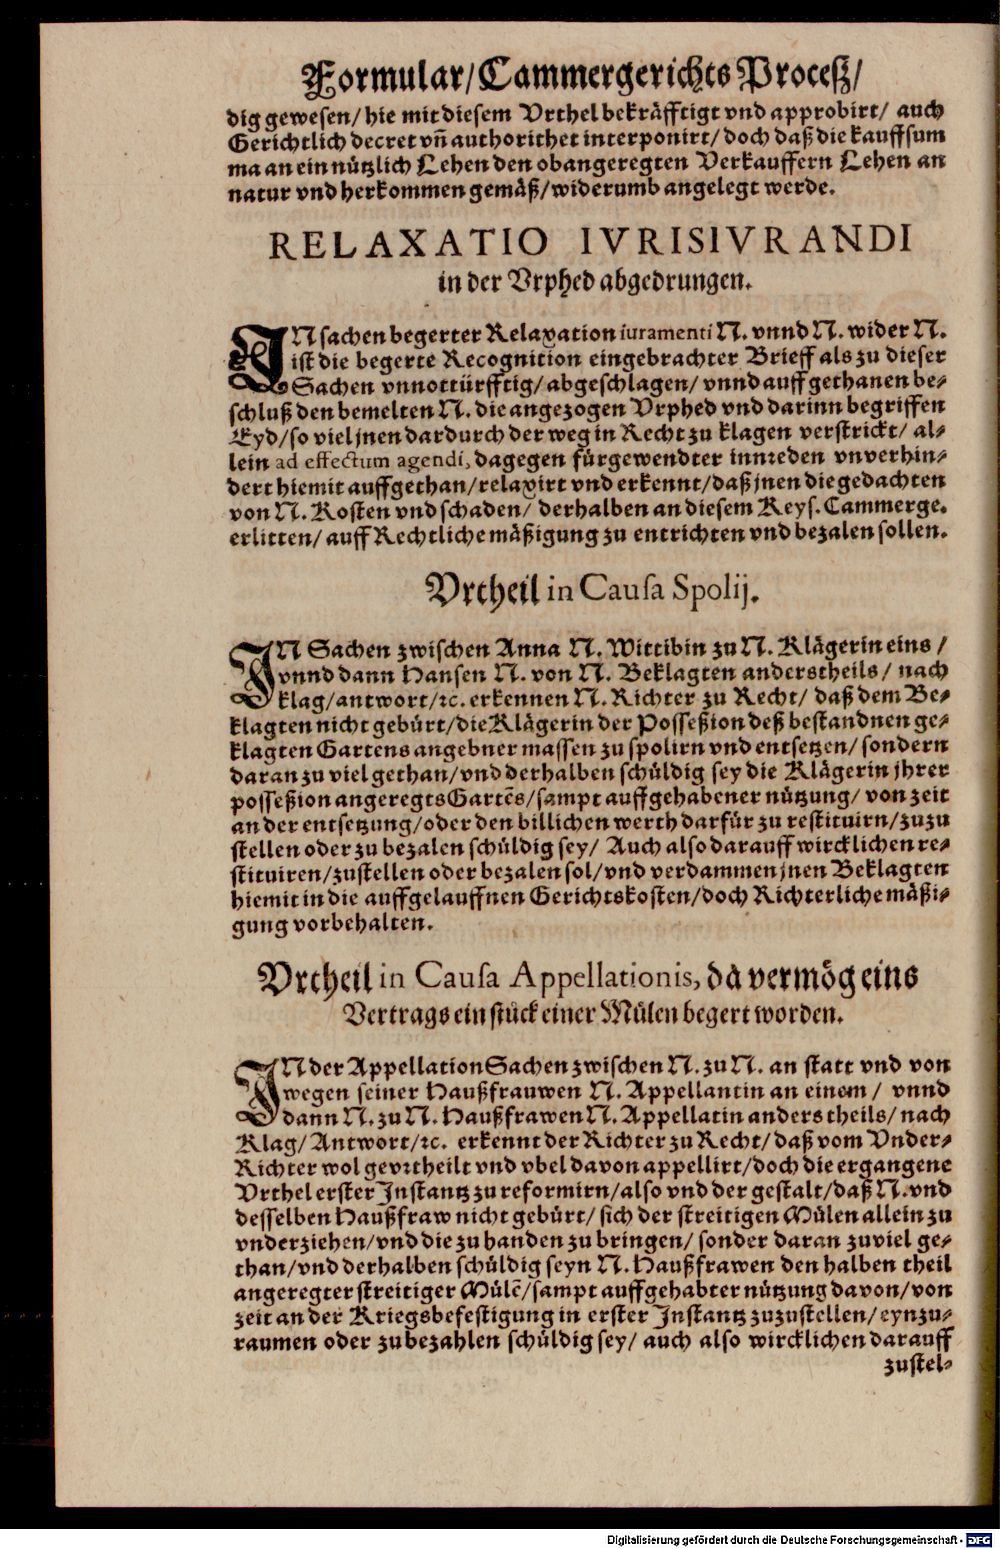 Formular/Cammergerichts Proceß/
dig gewesen/ hie mit diesem Vrthel bekräfftigt vnd approbirt/ auch
Gerichtlich decret vñ authorithet interponirt/ doch daß die kauffsum
ma an ein nützlich Lehen den obangeregten Verkauffern Lehen an
natur vnd herkommen gemäß/ widerumb angelegt werde.
RELAXATIO IVRISIVRANDI
in der Vrphed abgedrungen.
IN sachen begerter Relaxation iuramenti N. vnnd N. wider N.
ist die begerte Recognition eingebrachter Brieff als zu dieser
Sachen vnnottürfftig/ abgeschlagen/ vnnd auff gethanen be-
schluß den bemelten N. die angezogen Vrphed vnd darinn begriffen
Eyd/ so viel jnen dardurch der weg in Recht zu klagen verstrickt/ al-
lein ad effectum agendi, dagegen fürgewendter innreden vnverhin-
dert hiemit auffgethan/ relaxirt vnd erkennt/ daß jnen die gedachten
von N. Kosten vnd schaden/ derhalben an diesem Keys. Cammerge.
erlitten/ auff Rechtliche mäßigung zu entrichten vnd bezalen sollen.
Vrtheil in Causa Spolij.
IN Sachen zwischen Anna N. Wittibin zu N. Klägerin eins /
vnnd dann Hansen N. von N. Beklagten anderstheils / nach
klag/ antwort/ ꝛc. erkennen N. Richter zu Recht/ daß dem Be-
klagten nicht gebürt/ die Klägerin der Posseßion deß bestandnen ge-
klagten Gartens angebner massen zu spolirn vnd entsetzen/ sondern
daran zu viel gethan/ vnd derhalben schüldig sey die Klägerin jhrer
posseßion angeregts Gartẽs/ sampt auffgehabener nützung/ von zeit
an der entsetzung/ oder den billichen werth darfür zu restituirn/ zuzu
stellen oder zu bezalen schüldig sey/ Auch also darauff wircklichen re-
stituiren/ zustellen oder bezalen sol/ vnd verdammen jnen Beklagten
hiemit in die auffgelauffnen Gerichtskosten/ doch Richterliche mäßi-
gung vorbehalten.
Vrtheil in Causa Appellationis, da vermög eins
Vertrags ein stück einer Mülen begert worden.
IN der Appellation Sachen zwischen N. zu N. an statt vnd von
wegen seiner Haußfrauwen N. Appellantin an einem / vnnd
dann N. zu N. Haußfrawen N. Appellatin anderstheils/ nach
Klag/ Antwort/ ꝛc. erkennt der Richter zu Recht/ daß vom Vnder-
Richter wol gevrtheilt vnd vbel davon appellirt/ doch die ergangene
Vrthel erster Instantz zu reformirn/ also vnd der gestalt/ daß N. vnd
desselben Haußfraw nicht gebürt/ sich der streitigen Mülen allein zu
vnderziehen/ vnd die zu handen zu bringen/ sonder daran zuviel ge-
than/ vnd derhalben schüldig seyn N. Haußfrawen den halben theil
angeregter streitiger Mülẽ/ sampt auffgehabter nützung davon/ von
zeit an der Kriegsbefestigung in erster Instantz zuzustellen/ eynzu-
raumen oder zubezahlen schüldig sey/ auch also wircklichen darauff
zustel-
Digitalisierung gefördert durch die Deutsche Forschungsgemeinschaft - DFG